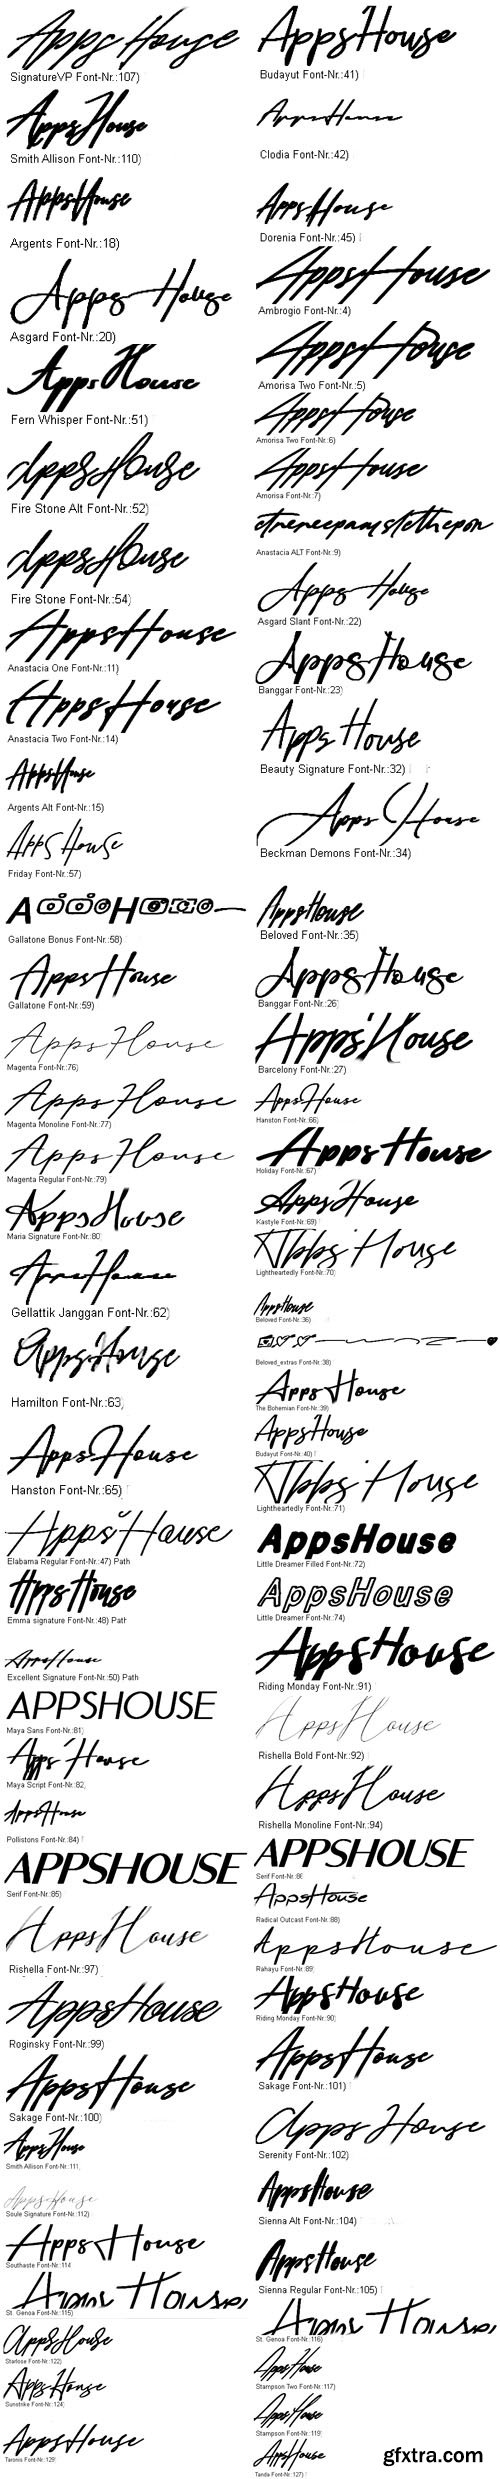 Apps House
SignatureVP Font-Nr.:107)
AppsHouse
Budayut Font-Nr.:41)
AppsHouse
Smith Allison Font-Nr.:110)
AppsHouse
Clodia Font-Nr.:42)
AppsHouse
Argents Font-Nr.:18)
AppsHouse
Dorenia Font-Nr.:45)
AppsHouse
Asgard Font-Nr.:20)
AppsHouse
Ambrogio Font-Nr.:4)
AppsHouse
Fern Whisper Font-Nr.:51)
AppsHouse
Amorisa Two Font-Nr.:5)
AppsHouse
Amorisa Two Font-Nr.:6)
AppsHouse
Fire Stone Alt Font-Nr.:52)
AppsHouse
Amorisa Font-Nr.:7)
AppsHouse
Fire Stone Font-Nr.:54)
Anastacia ALT Font-Nr.:9)
AppsHouse
Asgard Slant Font-Nr.:22)
AppsHouse
Anastacia One Font-Nr.:11)
AppsHouse
Banggar Font-Nr.:23)
AppsHouse
Anastacia Two Font-Nr.:14)
Apps House
Beauty Signature Font-Nr.:32)
AppsHouse
Argents Alt Font-Nr.:15)
Apps House
Beckman Demons Font-Nr.:34)
Apps House
Friday Font-Nr.:57)
A H
Gallatone Bonus Font-Nr.:58)
AppsHouse
Beloved Font-Nr.:35)
AppsHouse
Gallatone Font-Nr.:59)
AppsHouse
Banggar Font-Nr.:26)
AppsHouse
Magenta Font-Nr.:76)
AppsHouse
Barcelony Font-Nr.:27)
AppsHouse
Magenta Monoline Font-Nr.:77)
AppsHouse
Hanston Font-Nr.:66)
AppsHouse
Magenta Regular Font-Nr.:79)
AppsHouse
Holiday Font-Nr.:67)
AppsHouse
Maria Signature Font-Nr.:80
AppsHouse
Kastyle Font-Nr.:69)
AppsHouse
Lightheartedly Font-Nr.:70)
AppsHouse
Gellattik Janggan Font-Nr.:62)
AppsHouse
Beloved Font-Nr.:36)
Beloved_extras Font-Nr.:38)
AppsHouse
Hamilton Font-Nr.:63)
AppsHouse
The Bohemian Font-Nr.:39)
AppsHouse
Budayut Font-Nr.:40)
AppsHouse
Hanston Font-Nr.:65)
AppsHouse
Lightheartedly Font-Nr.:71)
AppsHouse
Elabama Regular Font-Nr.:47) Path
AppsHouse
Little Dreamer Filled Font-Nr.:72)
AppsHouse
Emma signature Font-Nr.:48) Path
AppsHouse
Little Dreamer Font-Nr.:74)
AppsHouse
Excellent Signature Font-Nr.:50) Path
AppsHouse
Riding Monday Font-Nr.:91)
APPSHOUSE
Maya Sans Font-Nr.:81)
AppsHouse
Rishella Bold Font-Nr.:92)
AppsHouse
Maya Script Font-Nr.:82,
AppsHouse
Rishella Monoline Font-Nr.:94)
AppsHouse
Pollistons Font-Nr.:84)
APPSHOUSE
Serif Font-Nr.:85)
APPSHOUSE
Serif Font-Nr.:86
AppsHouse
Radical Outcast Font-Nr.:88)
AppsHouse
Rishella Font-Nr.:97)
AppsHouse
Rahayu Font-Nr.:89)
AppsHouse
Roginsky Font-Nr.:99)
AppsHouse
Riding Monday Font-Nr.:90)
AppsHouse
Sakage Font-Nr.:100)
AppsHouse
Sakage Font-Nr.:101)
AppsHouse
Smith Allison Font-Nr.:111,
AppsHouse
Serenity Font-Nr.:102)
AppsHouse
Soule Signature Font-Nr.:112)
AppsHouse
Sienna Alt Font-Nr.:104)
AppsHouse
Southaste Font-Nr.:114
AppsHouse
Sienna Regular Font-Nr.:105)
AppsHouse
St. Genoa Font-Nr.:115)
AppsHouse
St. Genoa Font-Nr.:116)
AppsHouse
Starlose Font-Nr.:122)
AppsHouse
Stampson Two Font-Nr.:117)
AppsHouse
Sunstrike Font-Nr.:124)
AppsHouse
Stampson Font-Nr.:119)
AppsHouse
Taronis Font-Nr.:129)
AppsHouse
Tanda Font-Nr.:127)
gfxtra.com